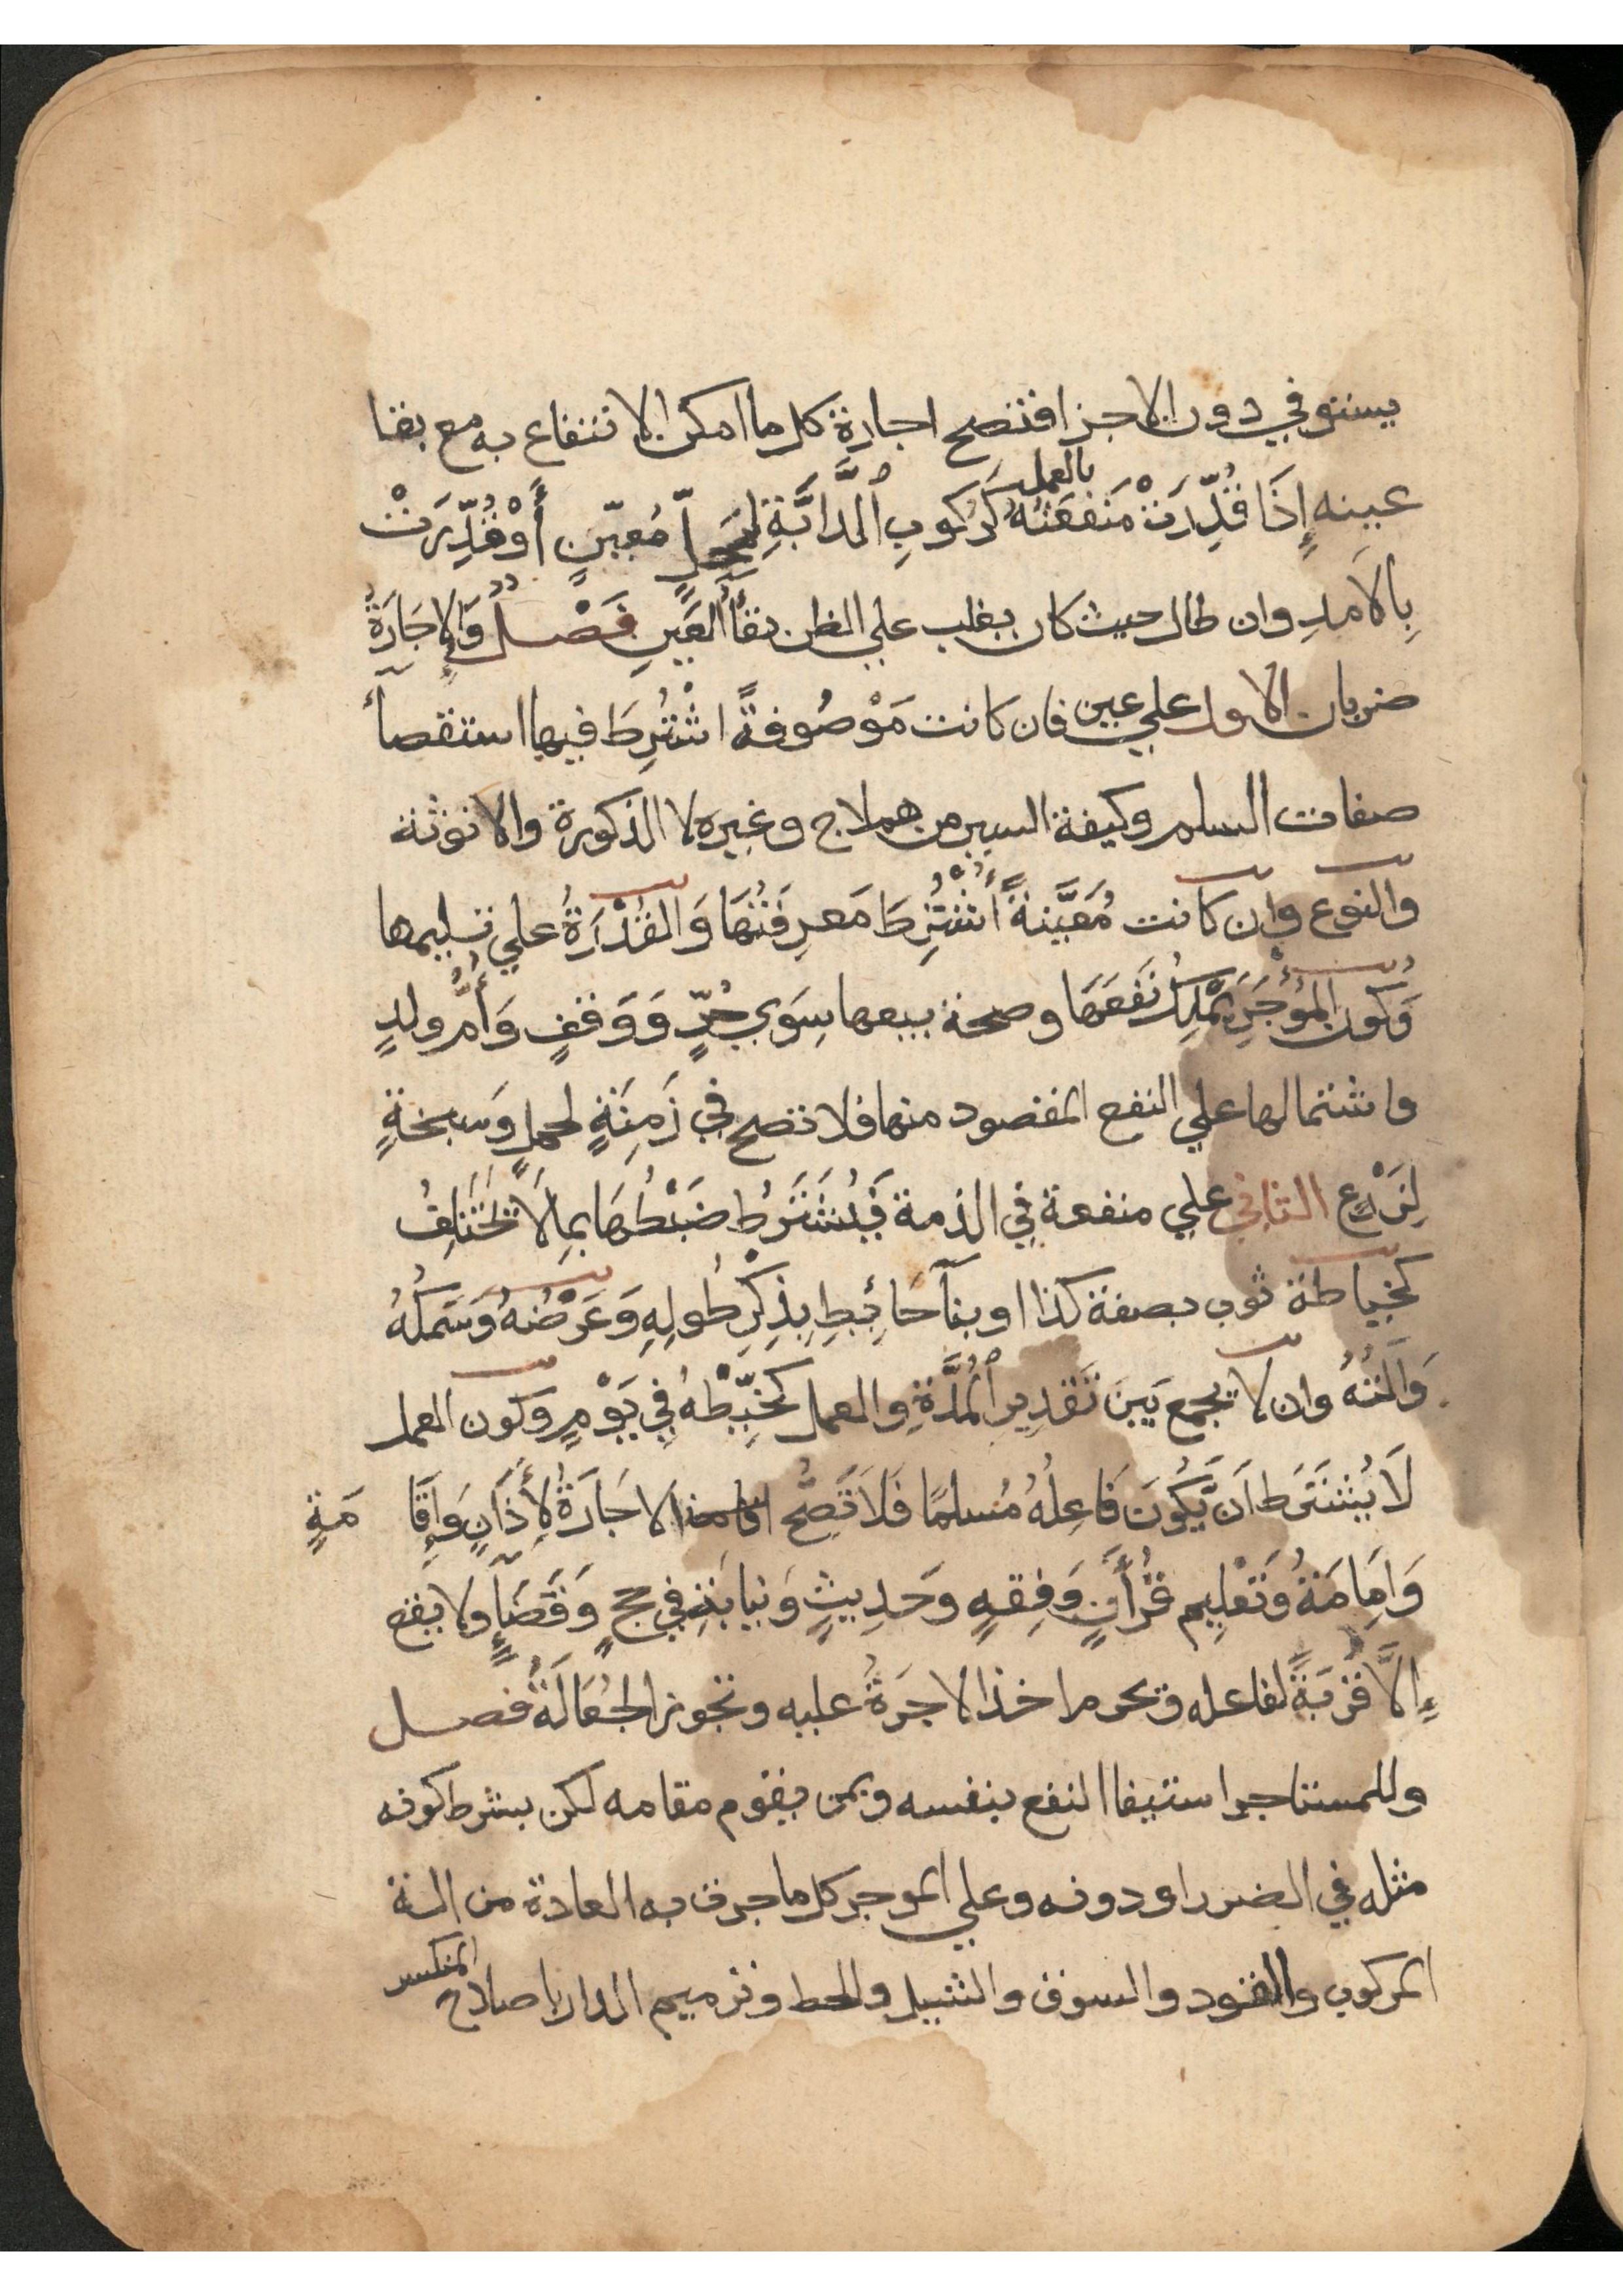 يستوفي دون الاجزا فتصح اجارة كل ما امكن الانتفاع به مع بقا
عينه إِذَا قُدِّرَتْ مَنفَعَتُهُ بالعمل كَرُكوبِ ٱلدَّابَّةِ لمَحلٍّ مُعيّنٍ أَوْ قُدِّرَتْ
بِالاَمدِ وان طال حيث كان يغلب علي الظن بقآأُ العَينِ فَصْلٌ وَالإِجَارَةُ
ضربان الاول علي عين فان كانت مَوْصُوفةً اشْتُرِطَ فيها استقصآأ
صفات السلم وكيفة السير من هملاج وغيره لا الذكورة والانوثة
والنوع وان كانت مُعَيَّنةً أُشْتُرِطَ مَعرِفَتُهَا وَالقُدْرَةُ علي تسليمها
وَكَون المُؤْجَرِ يَمْلِكُ نَفعَهَا وصحة بيعها سِوَي حُرٍّ وَوَقفٍ وَأُمِّ ولدٍ
واشتمالها علي النفع المقصود منها فلا تصح في زَمِنَةٍ لحملٍ وَسبخةٍ
لِزَرْعٍ الثاني علي منفعة في الذمة فَيُشتَرَطُ ضَبْطُهَا بِمَا لاَ تَختَلِفُ
كخياطة ثوب بصفة كذا او بنآ حَائِيطِ بِذِكْرِ طُولِهِ وَعَرْضُهُ وَسَمكُهُ
وَآلَتُهُ وان لا يجمع بَينَ تَقدِيرِ ٱلْمُدَّةِ والعمل كَيُخَيِّطْهُ فِي يَوْمٍ وكون العمل
لاَ يُشتَرَط اَن يَّكُونَ فَاعِلُهُ مُسلمًا فَلاَ تَصِحُّ الاجَارَةُ لِأَذَانٍ وَإِقَا مَةٍ
وَاِمَامَةٌ وَتَعْلِيم قُرأَنٍ وَفِقهٍ وَحَدِيثٍ وَنيابَةٍ في حجٍ وَقَضَآءٍ ولا يقع
إِلاَّ قُرْبَةً لفاعله ويحرم اخذ الاجرَةُ عليه وتجوز الجُعَالَةُ فصل
وللمستاجر استيفا النفع بنفسه وبمن يقوم مقامه لكن بشرط كونه
مثله في الضرر او دونه وعلي الموجر كل ما جرت به العادة من الة
المركوب والقود والسوق والشيل والحط وترميم الدار باصلاح المنكسر